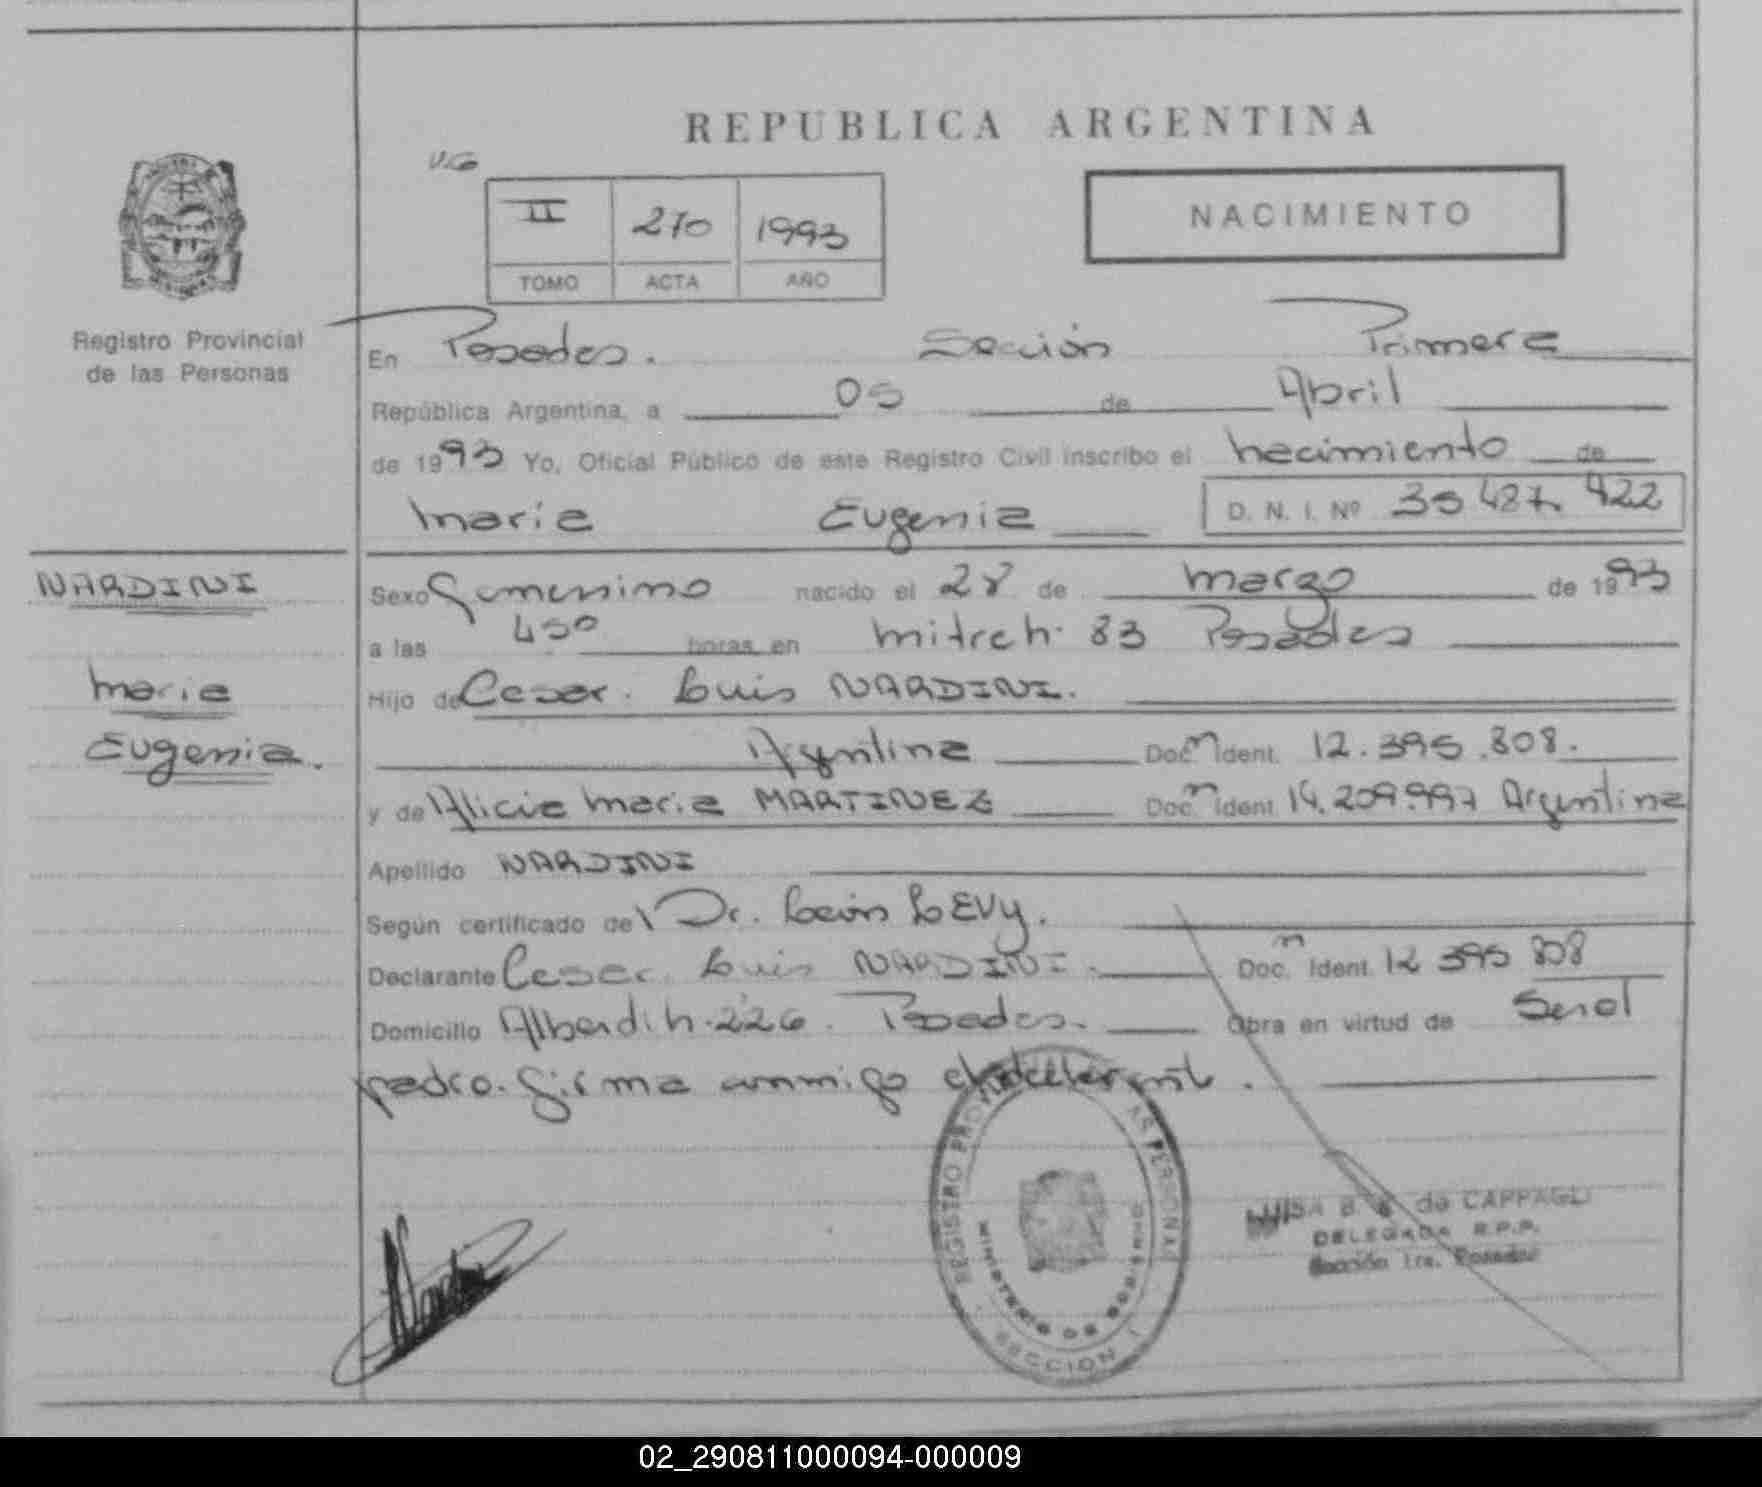 REPUBLICA ARGENTINA
II 270 1993
TOMO ACTA AÑO
NACIMIENTO
Registro Provincial
de las Personas
En Posadas. Sección Primera
República Argentina, a 05 de Abril
de 1993 Yo, Oficial Público de este Registro Civil inscribo el nacimiento de
Maria Eugenia D. N. I. Nº 35 487. 422
NARDINI
Maria
Eugenia.
Sexo Femenino nacido el 28 de marzo de 1993
a las 450 horas en mitre n. 83 Posadas
Hijo de Cesar. Luis NARDINI.
Argentina Doc. Ident. 12.395.808.
y de Alicia Maria MARTINEZ Doc. Ident. 14.209.997 Argentina
Apellido NARDINI
Según certificado de Dr. León LEVY.
Declarante Cesar. Luis NARDINI. Doc. Ident. 12 395 808
Domicilio Alberdi n. 226. Posadas. Obra en virtud de Ser el
padre. Firma conmigo el declarante.
REGISTRO PROV AS PERSONAS
MINISTERIO DE GOBIERNO
SECCION 1
LUISA B. de CAPPAGLI
DELEGADA R.P.P.
Sección 1ra. Posadas
02_290811000094-000009